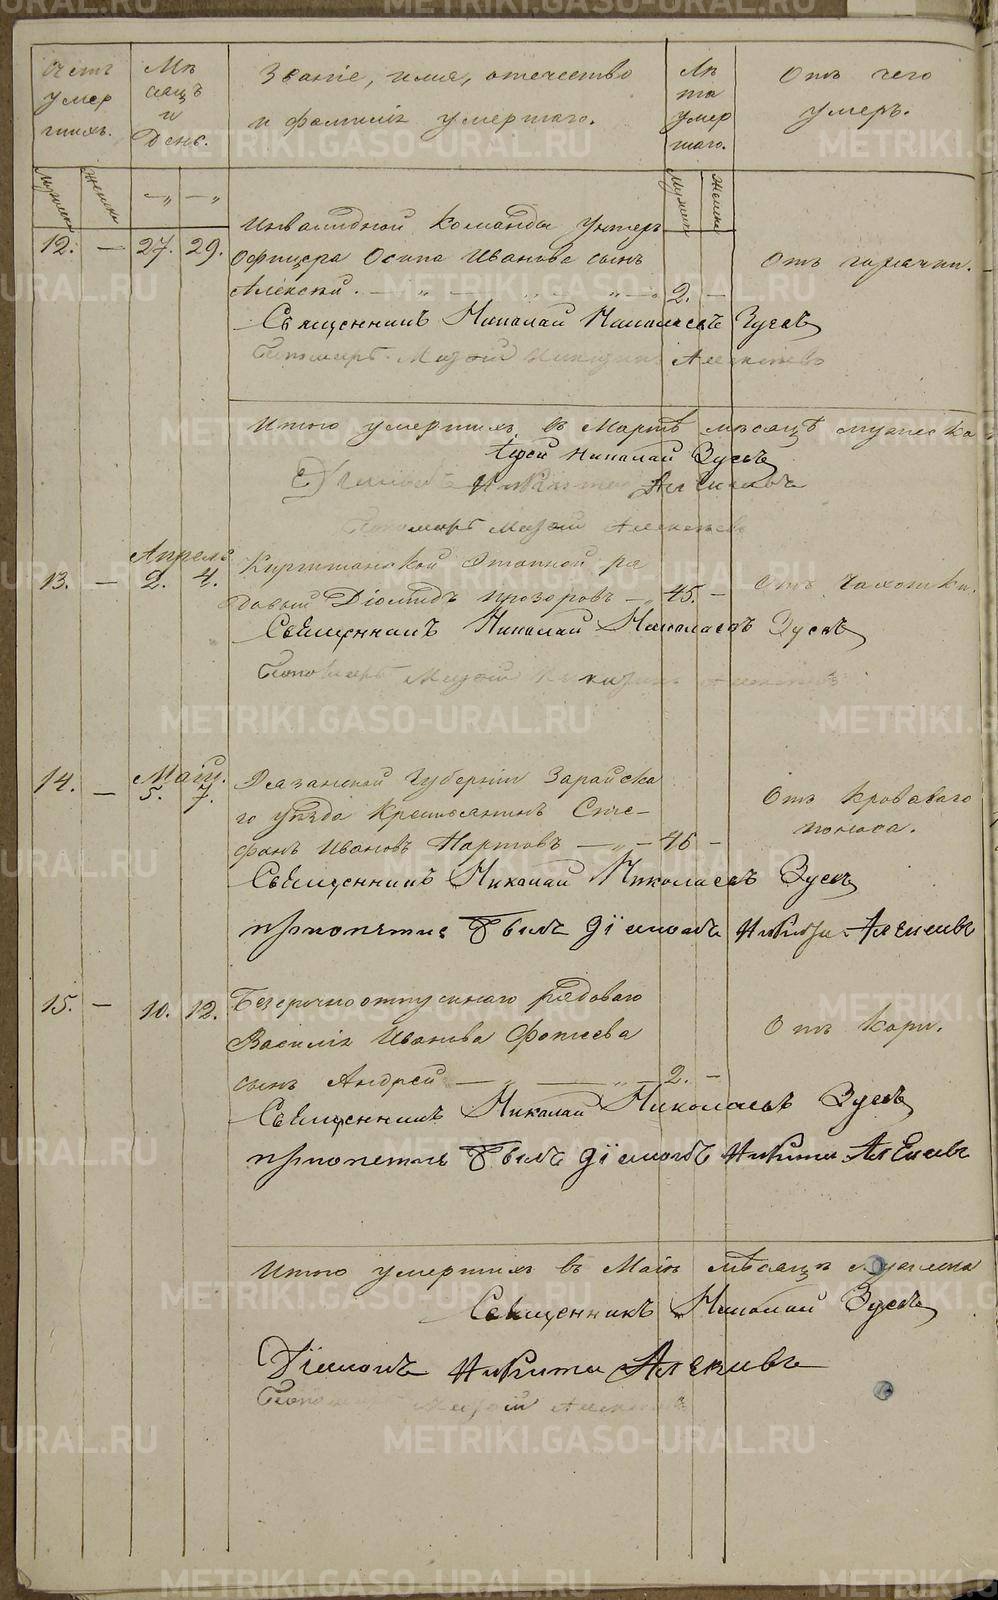 Счетъ умершихъ.
Мѣсяцъ и День.
Званіе, имя, отечество
и фамилія умершаго.
Лѣта умершаго.
Отъ чего
умеръ.
Мужска Женска
Мужска Женска
Инвалидной Команды Унтеръ
12. — 27. 29. Офицера Осипа Иванова сынъ Отъ горячки.
Алексѣй. — 2. —
Священникъ Николай Николаевъ Зуевъ
Пономарь Алексѣевъ
Итого умершихъ въ Мартѣ мѣсяцѣ мужеска
Іерей Николай Зуевъ
Никита Алексѣевъ
Пономарь Алексѣевъ
Апрель
13. — 2. 4. Киргишанской Этапной ря
довый Діомидъ Прозоровъ — 45. — Отъ чахотки.
Священникъ Николай Николаевъ Зуевъ
Пономарь
Маія.
14. — 5. 7. Рязанской Губерніи Зарайска
го уѣзда Крестьянинъ Сте-
фанъ Ивановъ Карповъ — 46 — Отъ кроваваго
поноса.
Священникъ Николай Николаевъ Зуевъ
при отпетіе былъ діяконъ Никита Алексѣевъ
15. — 10. 12. Безсрочноотпускнаго рядоваго
Василія Иванова Фотеева Отъ кори.
сынъ Андрей — 2. —
Священникъ Николай Николаевъ Зуевъ
при отпетіе былъ діяконъ Никита Алексѣевъ
Итого умершихъ въ Маіѣ мѣсяцѣ мужеска
Священникъ Николай Зуевъ
Діяконъ Никита Алексѣевъ
Пономарь Алексѣевъ
METRIKI.GASO-URAL.RU